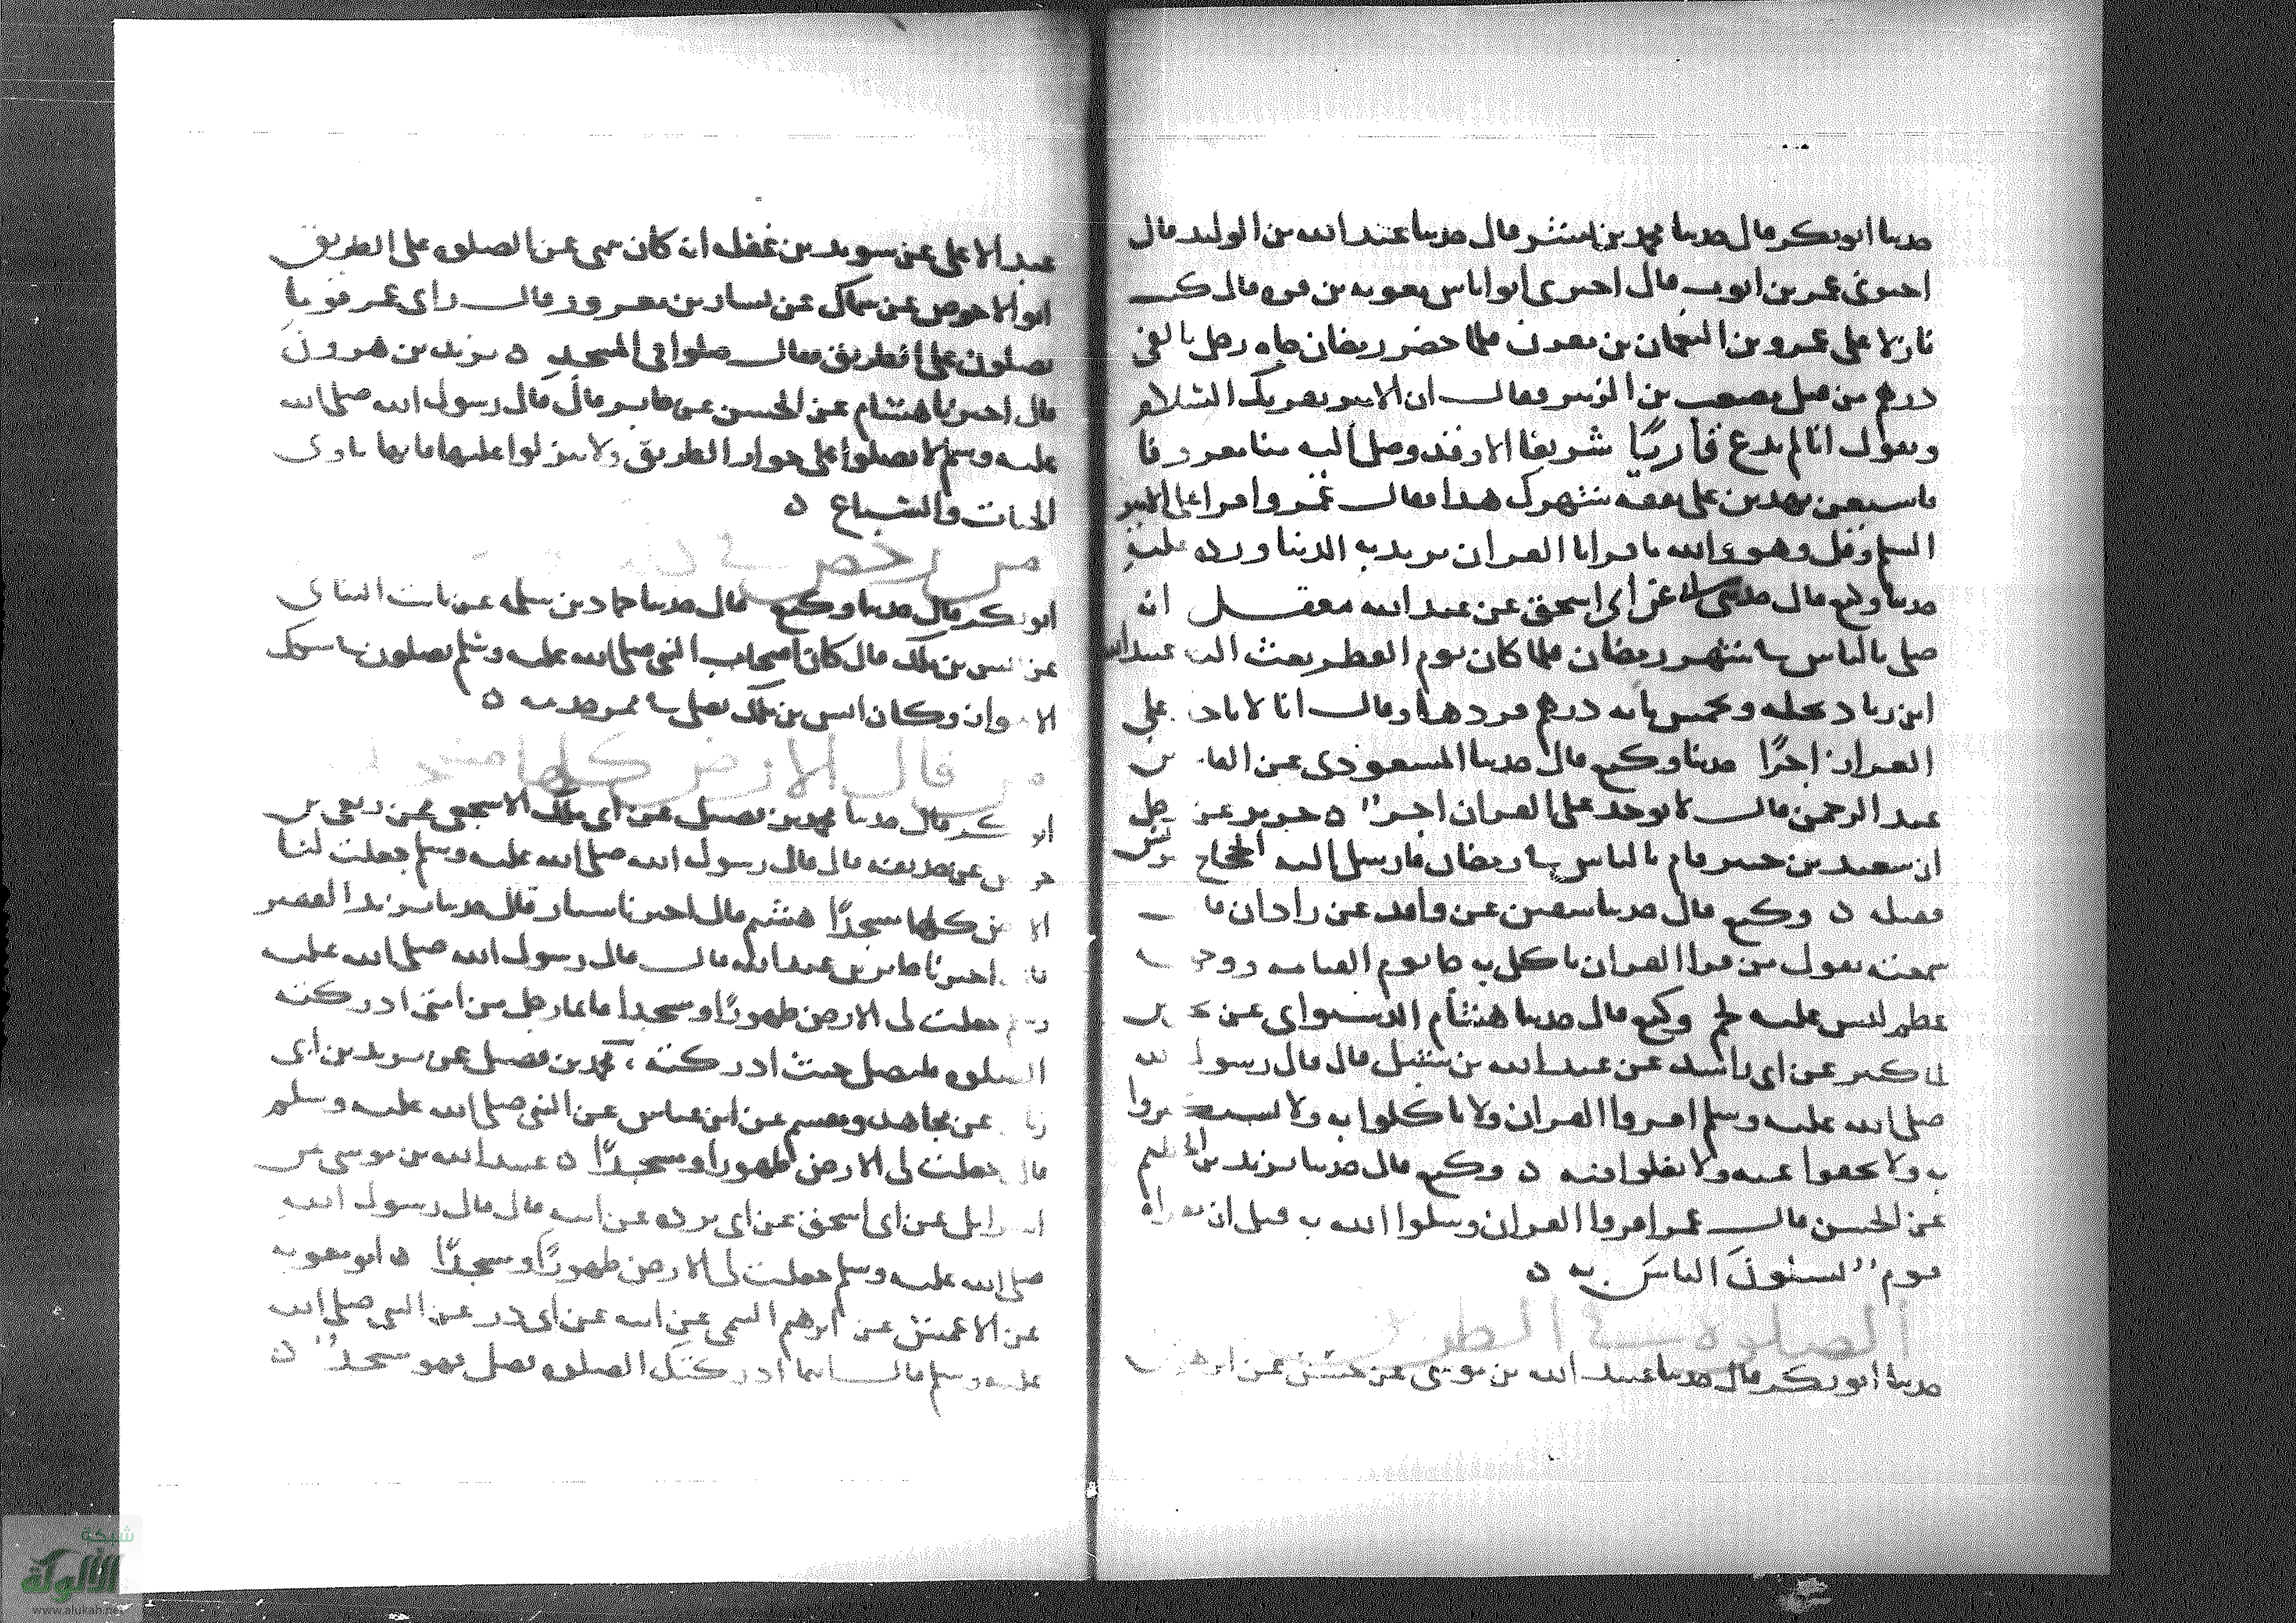 حدثنا ابو بكر قال حدثنا محمد بن بشر قال حدثنا عبد الله بن الوليد قال
اخبرني عمر بن ايوب قال اخبرني ابو اياس معويه بن قره قال كنت
نازلا على عمرو بن النعمان بن مقرن فلما حضر رمضان جاه رجل بالفي
درهم من قبل مصعب بن الزبير فقال ان الامير يقريك السلام
ويقول انا لم ندع قاريًا شريفا الا وقد وصل اليه منا معروفا
فاستعن بهذين على نفقه شهرك هذا فقال عمرو اقرا على الامير
السلم وقل وهو والله ما قرانا القران نريد به الدنيا ورده عليه
حدثنا وكيع قال حدثنا عن ابي اسحق عن عبد الله معقل انه
صلى بالناس في شهر رمضان فلما كان يوم الفطر بعث اليه عبيد الله
ابن زياد بحله وبخمس مايه درهم فردها وقال انا لا ناخذ على
القران اجرًا حدثنا وكيع قال حدثنا المسعودي عن القا بن
عبد الرحمن قال لا يوخذ على القران اجر ٥ جرير عن
ان سعيد بن جبير قام بالناس في رمضان فارسل اليه الحجاج برنس
فقبله ٥ وكيع قال حدثنا سفين عن واقد عن زاذان قال
سمعته يقول من قرا القران ياكل به جا يوم القيامه ووجهه
عظم ليس عليه لحم وكيع قال حدثنا هشام الدستواي عن يحيى بن
ابي كثير عن ابي راشد عن عبد الله بن شبل قال قال رسول الله
صلى الله عليه وسلم اقروا القران ولا تاكلوا به ولا تستكثروا
به ولا تجفوا عنه ولا تغلوا فيه ٥ وكيع قال حدثنا يزيد بن ابراهيم
عن الحسن قال عمر اقروا القران وسلوا الله به قبل ان يقراه
قوم يسئلونَ الناسَ به ٥
الصلوة في الطريق
حدثنا ابو بكر قال حدثنا عبيد الله بن موسى عن حنش عن ابرهيم بن
عبد الاعلى عن سويد بن غفله انه كان ينهى عن الصلوه على الطريق
ابو الاحوص عن سماك عن يسار بن معرور قال راى عمر قوما
يصلون على الطريق فقال صلوا في المسجد ٥ يزيد بن هرون
قال اخبرنا هشام عن الحسن عن جابر قال قال رسول الله صلى الله
عليه وسلم لا تصلوا على جواد الطريق ولا تنزلوا عليها فانها ماوى
الحيات والسباع ٥
من رخص في
ابو بكر قال حدثنا وكيع قال حدثنا حماد بن سلمه عن ثابت البناني
عن انس بن ملك قال كان اصحاب النبي صلى الله عليه وسلم يصلون
وكان انس بن ملك يصلي
من قال الارض كلها مسجد
ابو بكر قال حدثنا محمد بن فضيل عن ابي ملك الاشجعي عن ربعي بن
حراش عن حذيفه قال قال رسول الله صلى الله عليه وسلم جعلت لنا
الارض كلها مسجدًا هشيم قال اخبرنا سيار قال حدثنا يزيد الفقير
قال اخبرنا جابر بن عبد الله قال قال رسول الله صلى الله عليه
وسلم جعلت لي الارض طهورًا ومسجدا فايما رجل من امتي ادركته
الصلوه فليصل حيث ادركته ، محمد بن فضيل عن يزيد بن ابي
زياد عن مجاهد ومقسم عن ابن عباس عن النبي صلى الله عليه وسلم
قال جعلت لي الارض طهورا ومسجدًا ٥ عبيد الله بن موسى عن
اسرائيل عن ابي اسحق عن ابي برده عن ابيه قال قال رسول الله
صلى الله عليه وسلم جعلت لي الارض طهورًا ومسجدًا ٥ ابو معويه
عن الاعمش عن ابرهيم التيمي عن ابيه عن ابي ذر عن النبي صلى الله
عليه وسلم قال اينما ادركتك الصلوه فصل فهو مسجد ٥
شبكة
الألوكة
www.alukah.net